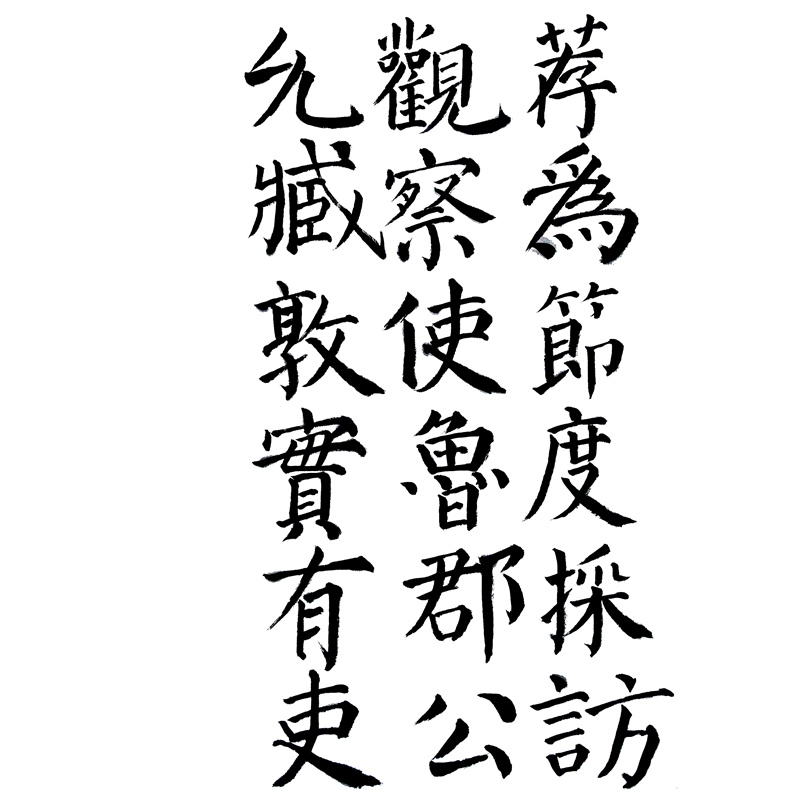 荐為節度採訪
觀察使魯郡公
允臧敦實有吏